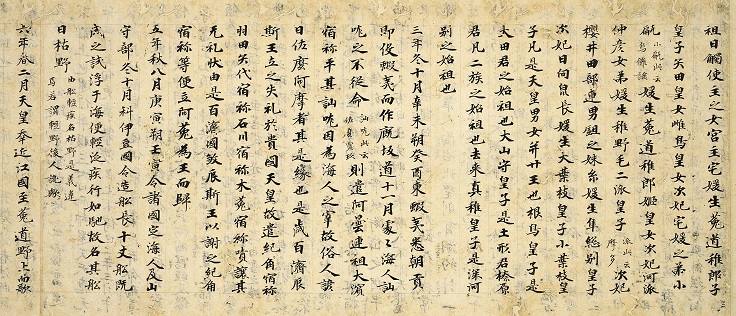 祖日觸使主之女宮主宅媛生菟道稚郎子
皇子矢田皇女雌鳥皇女次妃宅媛之弟小
甂媛生菟道稚郎姬皇女次妃河派
仲彦女弟媛生稚野毛二派皇子 派此云摩多 次妃
櫻井田部連男鉏之妹糸媛生隼総別皇子
次妃日向泉長媛生大葉枝皇子小葉枝皇
子凡是天皇男女并廿王也根鳥皇子是
大田君之始祖也大山守皇子是土形君榛原
君凡二族之始祖也去來真稚皇子是深河
別之始祖也
三年冬十月辛未朔癸酉東蝦夷悉朝貢
即役蝦夷而作厩坂道十一月處々海人訕
哤之不從命 訕哤此云佐麼賣玖 則遣阿曇連祖大濱
宿祢平其訕哤因為海人之宰故俗人諺
曰佐麼阿摩者其是緣也是歲百濟辰
斯王立之失礼於貴國天皇故遣紀角宿祢
羽田矢代宿祢石川宿祢木菟宿祢嘖讓其
无礼狀由是百濟國殺辰斯王以謝之紀角
宿祢等便立阿花為王而歸
五年秋八月庚寅朔壬寅令諸國定海人及山
守部冬十月科伊豆國令造船長十丈船既
成之試浮于海便輕泛疾行如馳故名其船
曰枯野 由船輕疾名枯野是義違焉若謂輕野後人訛歟
六年春二月天皇幸近江國至菟道野上而歌